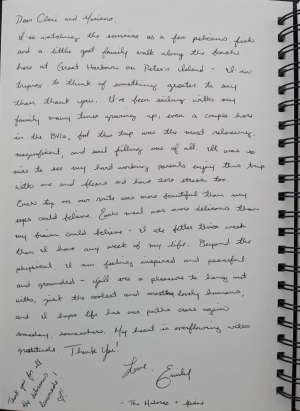 Dear Clare and Mariano,
I'm watching the sunrise as a few pelicans fish
and a little goat family walk along the beach
here at Great Harbour on Peter's Island - I'm
trying to think of something greater to say
than thank you. I've been sailing with my
family many times growing up, even a couple here
in the BVIs, but this trip was the most relaxing,
magnificent, and soul filling one of all. It was so
nice to see my hard working parents enjoy this trip
with me and have zero stress too.
Each day on our route was more beautiful than my
eyes could believe. Each meal was more delicious than
my brain could believe - I ate better this week
than I have any week of my life. Beyond the
physical I am feeling inspired and peaceful
and grounded - y'all are a pleasure to hang out
with, just the coolest and lovely humans,
and I hope life has our paths cross again
someday, somewhere. My heart is overflowing with
gratitude. Thank You!
Love,
Emily
- The
Thank you for all
the delicious